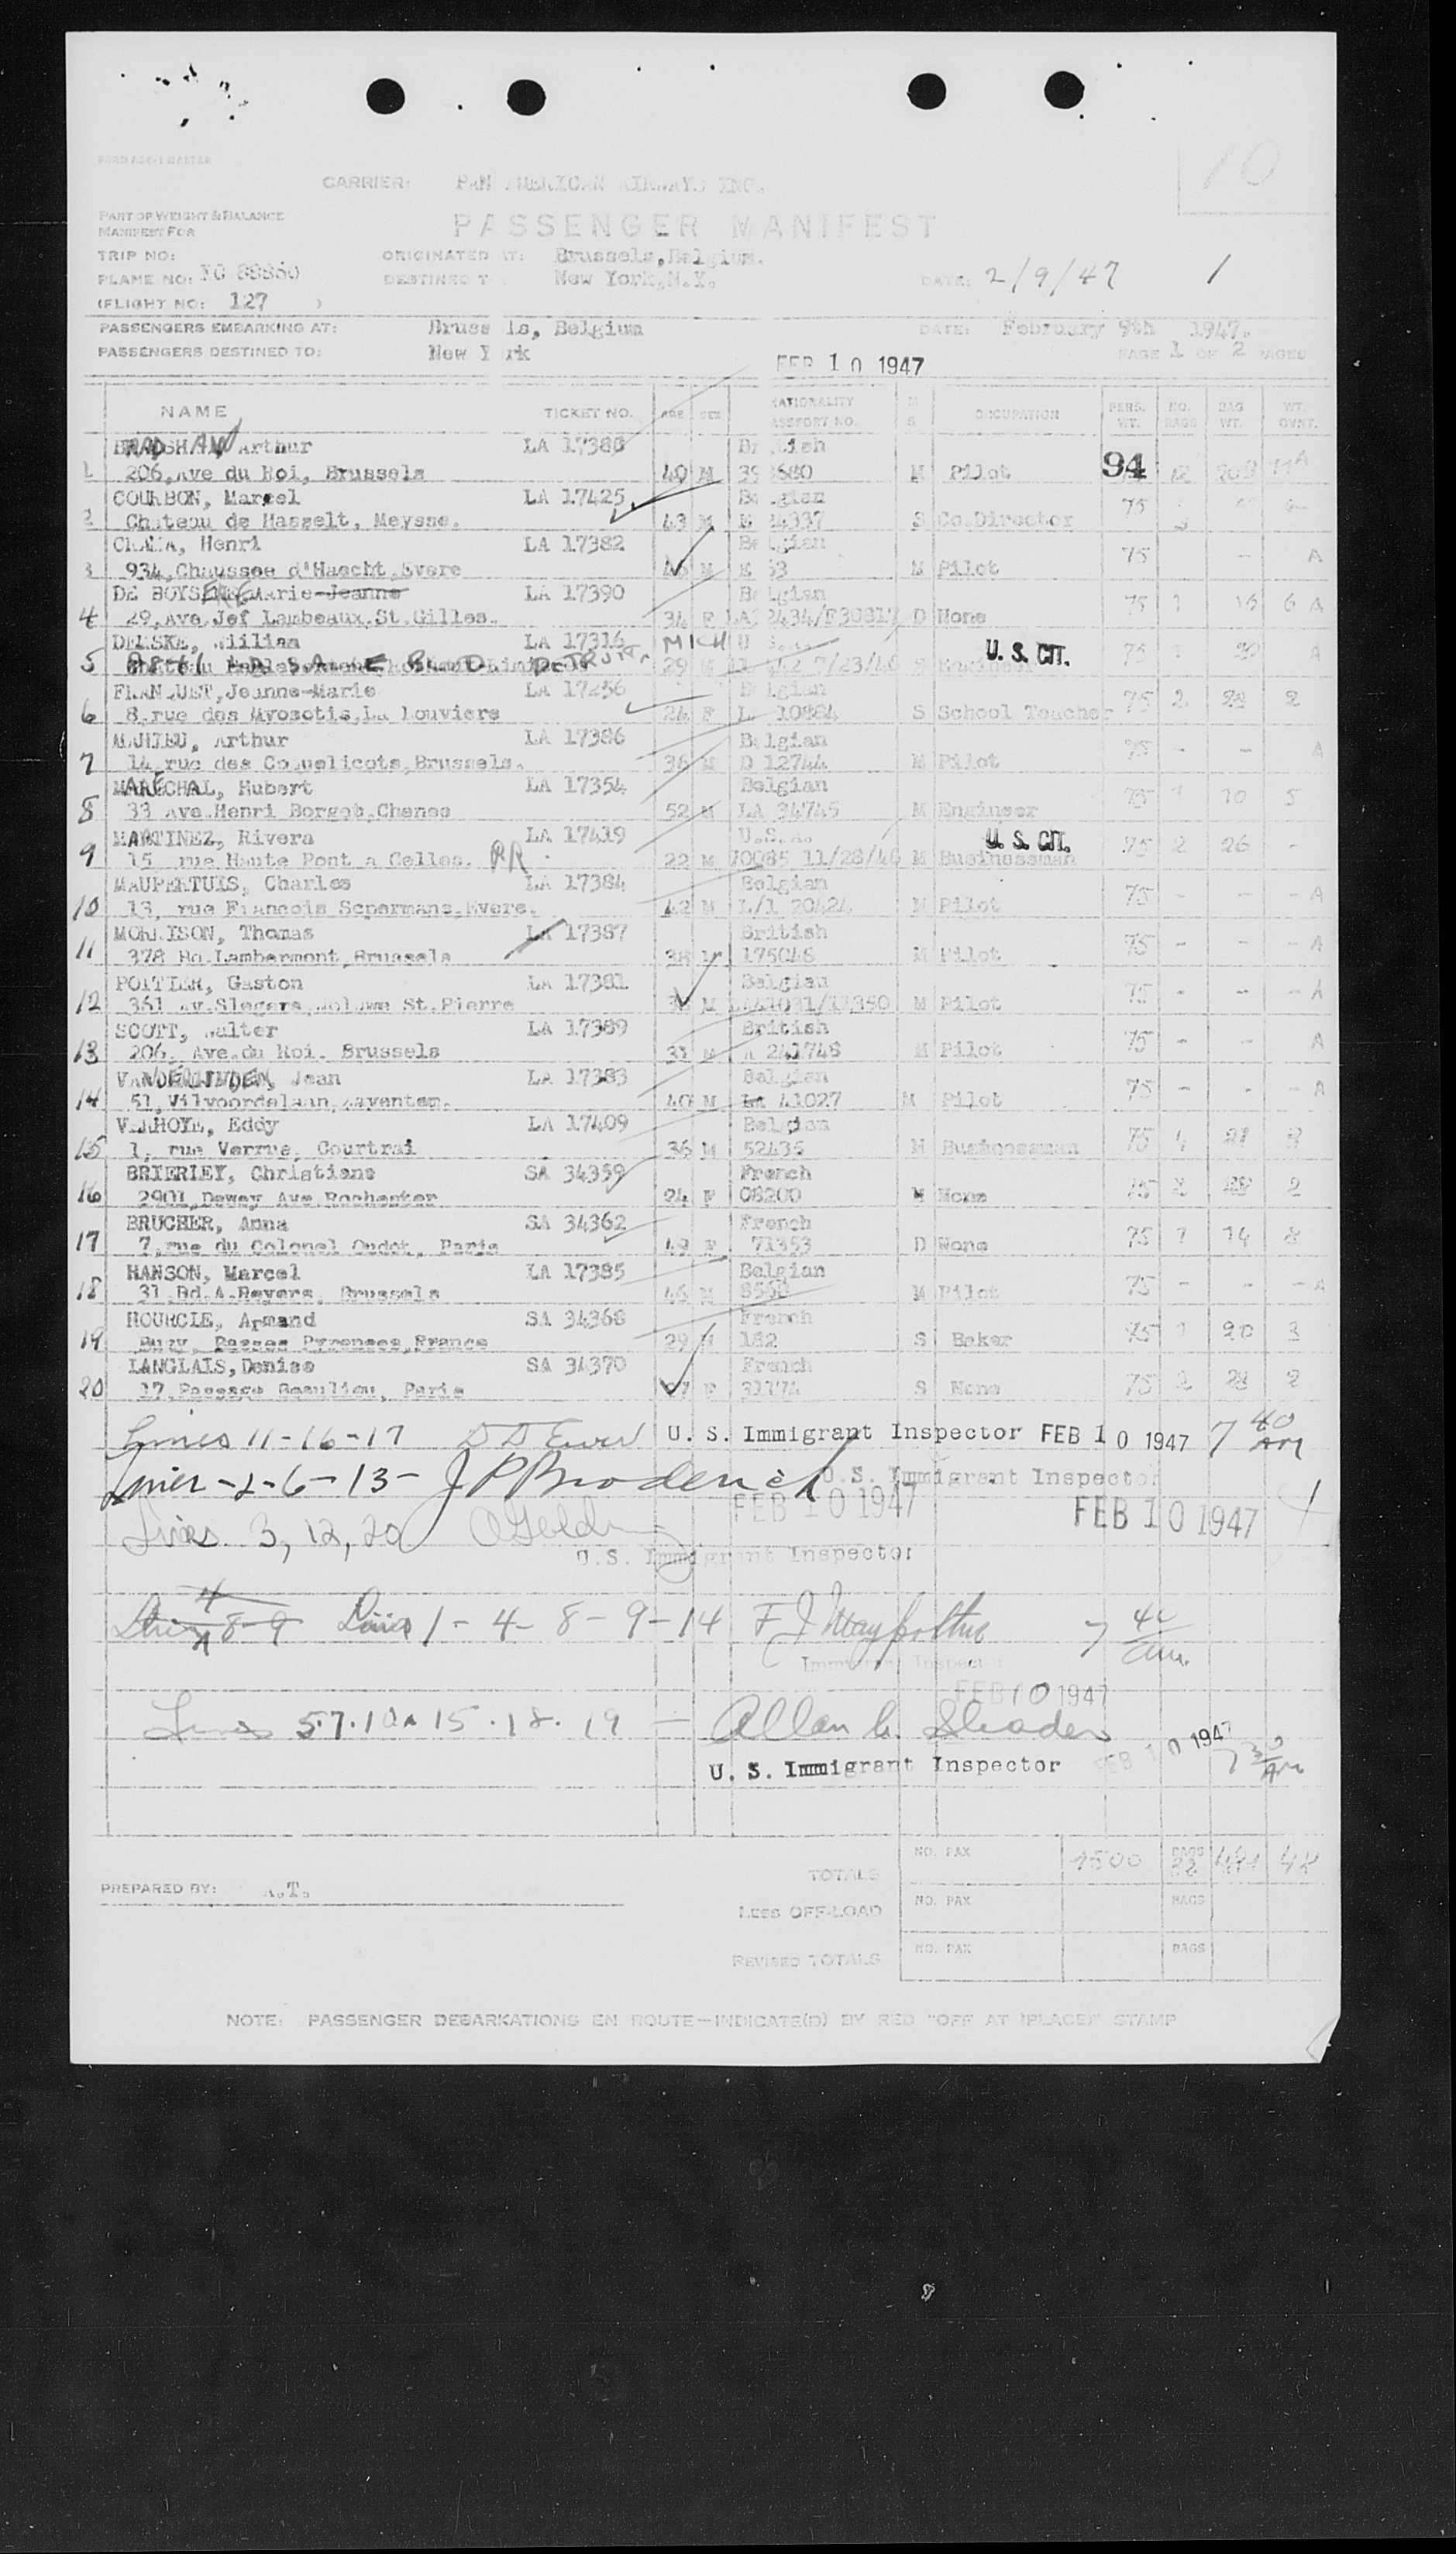 10
CARRIER: PAN AMERICAN AIRWAYS INC.
PART OF WEIGHT & BALANCE
MANIFEST FOR
PASSENGER MANIFEST
TRIP NO: ORIGINATED AT: Brussels, Belgium.
PLANE NO: NC 88860 DESTINED T New York, N.Y. DATE: 2/9/47 1
(FLIGHT NO: 127 )
PASSENGERS EMBARKING AT: Brussels, Belgium DATE: February 9th 1947.
PASSENGERS DESTINED TO: New York PAGE 1 OF 2 PAGES
FEB 10 1947
NAME TICKET NO. AGE SEX NATIONALITY M OCCUPATION PERS. NO. BAG WT.
PASSPORT NO. S WT. BAGS WT. OVWT.
BRADSHAW Arthur LA 17388 British
1 206, Ave du Roi, Brussels 40 M M Pilot 94
COURBON, Marcel LA 17425 Belgian
2 Chateau de Hasselt, Meysse. 43 M S Co. Director 75
Henri LA 17382 Belgian
3 934, Chaussee d'Haecht, Evere M M Pilot 75 - A
DE Marie-Jeanne LA 17390 Belgian
4 29, Ave Jef Lambeaux, St. Gilles. 34 F D None 75 1 16 6 A
William LA 17316 MICH U.S.A. U.S. CIT.
5 DETROIT. 29 M 7/23/46 75
FRANQUET, Jeanne-Marie LA 17256 Belgian
6 8, rue des Myosotis, La Louviere 24 F 10884 S School Teacher 75 2 28 2
MAHIEU, Arthur LA 17386 Belgian
7 14, rue des Coquelicots, Brussels. 36 M D 12744 M Pilot 75 - - A
MARECHAL, Hubert LA 17354 Belgian
8 33 Ave. Henri Borget, Chenee 52 M LA 34745 M Engineer 75 1 10 5
MARTINEZ, Rivera LA 17419 U.S.A. U.S. CIT.
9 15, rue Haute Pont a Celles. RR 22 M 70085 11/28/46 M Businessman 75 2 26 -
MAUPERTUIS, Charles LA 17384 Belgian
10 13, rue Francois Sepermans, Evere. 42 M L/1 20424 M Pilot 75 - - - A
MORRISON, Thomas LA 17387 British
11 378 Bd. Lambermont, Brussels 38 M 175046 M Pilot 75 - - - A
POITIER, Gaston LA 17381 Belgian
12 361 Av. Slegers, Woluwe St. Pierre M M Pilot 75 - - - A
SCOTT, Walter LA 17389 British
13 206, Ave. du Roi. Brussels 31 M A 241748 M Pilot 75 - - A
VANDERLINDEN, Jean LA 17383 Belgian
14 51, Vilvoordelaan, Zaventem. 40 M LA 41027 M Pilot 75 - - - A
VERHOYE, Eddy LA 17409 Belgian
15 1, rue Verrue, Courtrai 36 M 52436 M Businessman 75
BRIERLEY, Christiane SA 34359 French
16 2901, Dewey Ave. Rochester 24 F 08200 M None 75 2 28 2
BRUCHER, Anna SA 34362 French
17 7, rue du Colonel Oudot, Paris 49 F 71353 D None 75 1 14 8
HANSON, Marcel LA 17385 Belgian
18 31, Bd. A. Reyers, Brussels 46 M 8568 M Pilot 75 - - - A
HOURCIE, Armand SA 34368 French
19 Buzy, Basses Pyrenees, France 29 M 182 S Baker 75 1 20 3
LANGLAIS, Denise SA 34370 French
20 17, Passage Beaulieu, Paris 27 F 31174 S None 75 2 28 2
Lines 11-16-17 U. S. Immigrant Inspector FEB 10 1947 7 40 AM
Lines -2-6-13- J P Broderick U.S. Immigrant Inspector
FEB 10 1947 FEB 10 1947
Lines. 3, 12, 20
U.S. Immigrant Inspector
Lines 4 8-9 Lines 1-4-8-9-14 7 40 am.
Immigrant Inspector
FEB 10 1947
Lines 5.7.10.15.18.19 - Allan
U. S. Immigrant Inspector FEB 10 1947 7 30 AM
TOTALS NO. PAX 1500 BAGS 22 48
PREPARED BY: A.T.
LESS OFF-LOAD NO. PAX BAGS
REVISED TOTALS NO. PAX BAGS
NOTE: PASSENGER DEBARKATIONS EN ROUTE—INDICATE(D) BY RED "OFF AT (PLACE)" STAMP